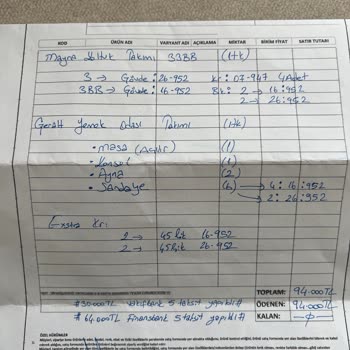 KOD ÜRÜN ADI VARYANT ADI AÇIKLAMA MİKTAR BİRİM FİYAT SATIR TUTARI
Mayna Koltuk Takımı 33BB (1tk)
3 → Gövde: 26-952 Kr: 07-947 4Adet
3BB → Gövde: 16-952 Bk: 2 → 16:952
2 → 26:952
Geralt Yemek Odası Takımı (1tk)
• masa (Açılır) (1)
• Konsol (1)
• Ayna (2)
• Sandalye (6) → 4: 16:952
→ 2: 26:952
Extra Kr:
2 → 45lik 16-952
2 → 45lik 26-952
TOPLAM: 94.000TL
# 30.000TL Vakıfbank 5 taksit yapıldı# ÖDENEN: 94.000TL
# 64.000TL Finansbank 5 taksit yapıldı# KALAN: -0-
ÖZEL HÜKÜMLER